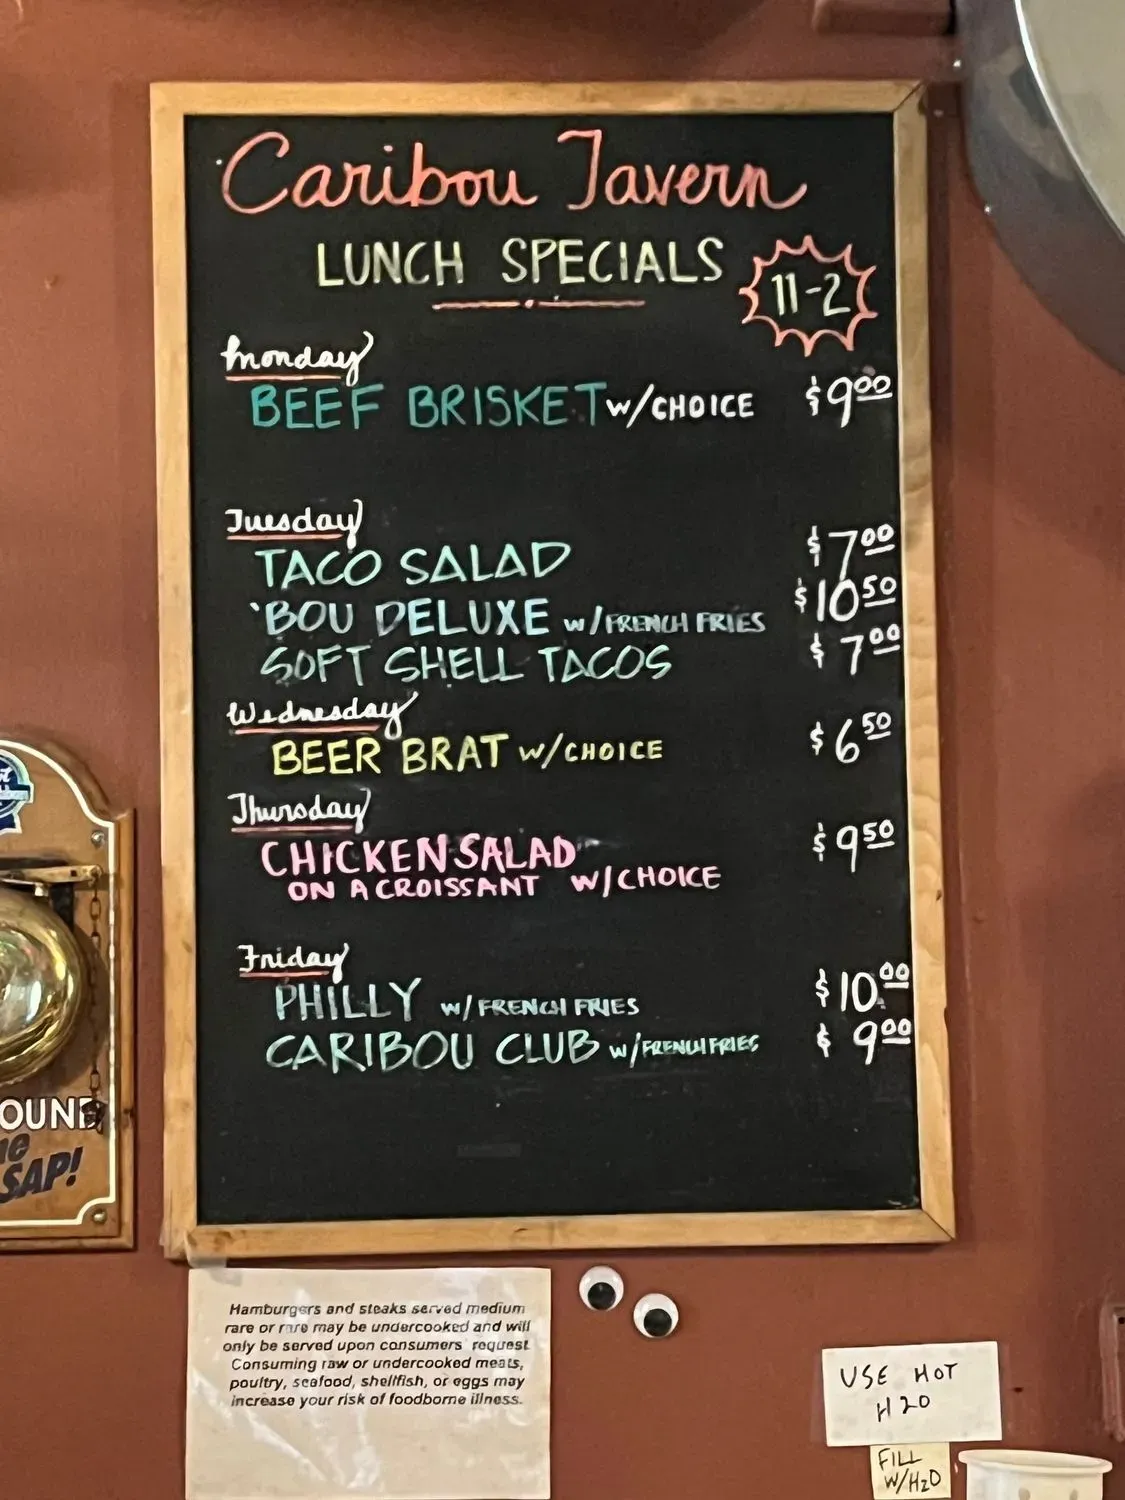 Caribou Tavern
LUNCH SPECIALS
11-2
Monday
BEEF BRISKET W/CHOICE $9.00
Tuesday
TACO SALAD $7.00
'BOU DELUXE W/FRENCH FRIES $10.50
SOFT SHELL TACOS $7.00
Wednesday
BEER BRAT W/CHOICE $6.50
Thursday
CHICKEN SALAD $9.50
ON A CROISSANT W/CHOICE
Friday
PHILLY W/FRENCH FRIES $10.00
CARIBOU CLUB W/FRENCH FRIES $9.00
SAP!
Hamburgers and steaks served medium
rare or rare may be undercooked and will
only be served upon consumers' request.
Consuming raw or undercooked meats,
poultry, seafood, shellfish, or eggs may
increase your risk of foodborne illness.
USE HOT
H20
FILL
W/H2O